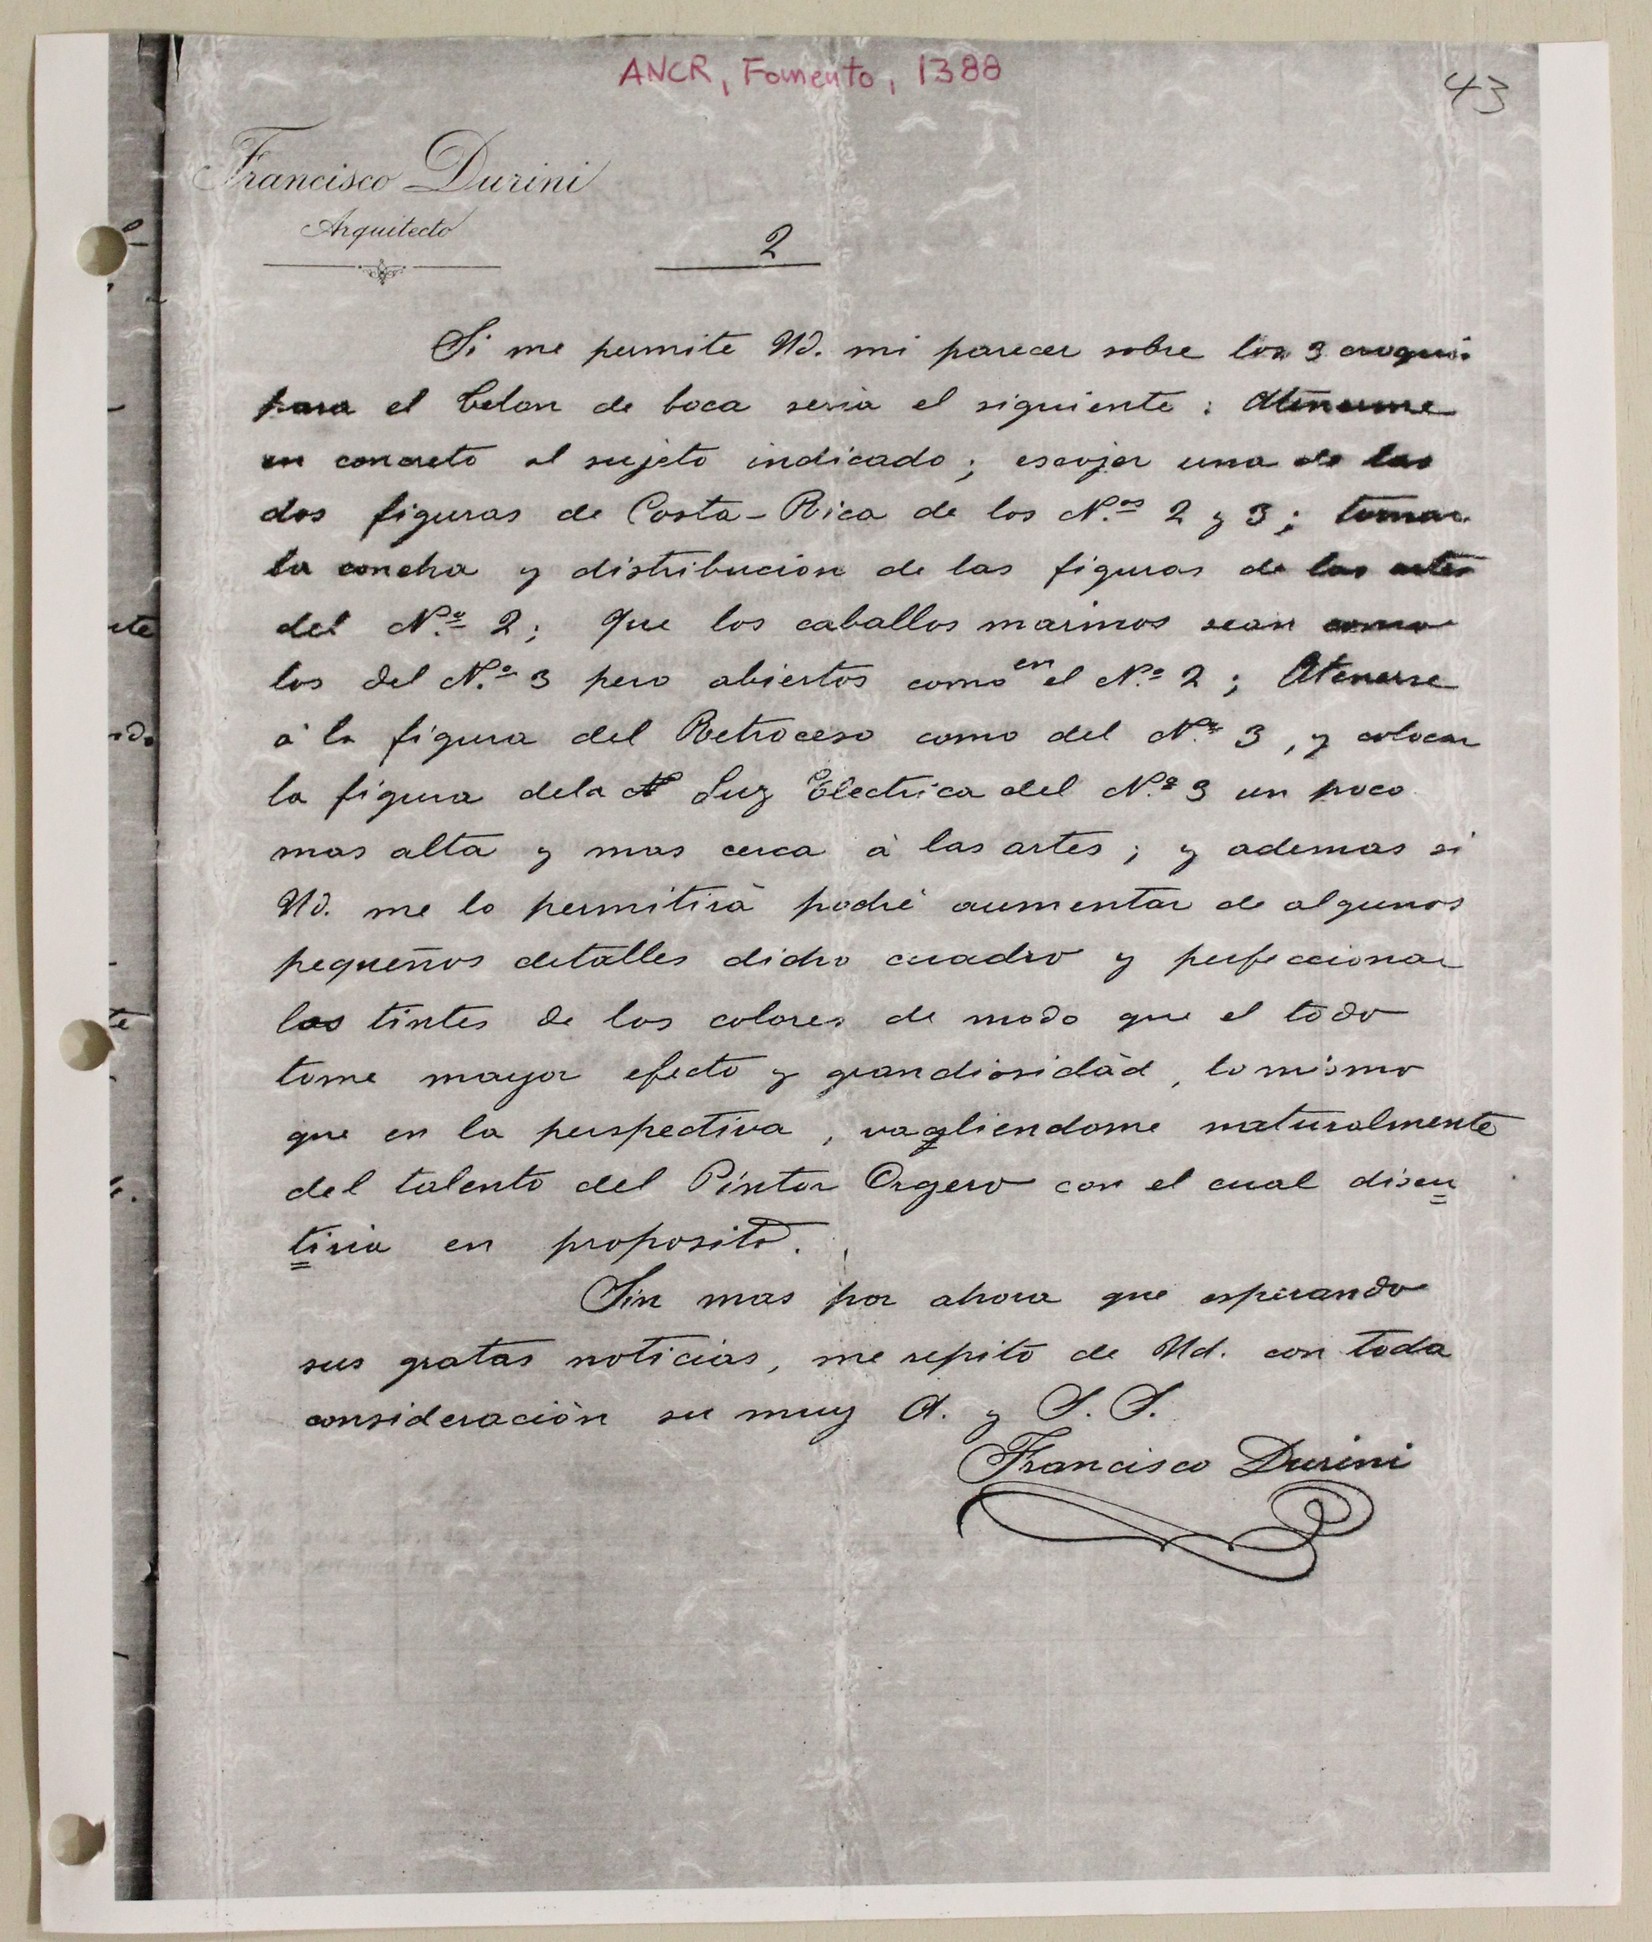 ANCR, Fomento, 1388
43
Francisco Durini
Arquitecto
2
Si me permite Ud. mi parecer sobre los 3 croquis
para el telon de boca seria el siguiente: Atenerme
en concreto al sujeto indicado; escojer una de las
dos figuras de Costa-Rica de los N.os 2 y 3; tomar
la concha y distribucion de las figuras de las artes
del N.o 2; Que los caballos marinos sean como
los del N.o 3 pero abiertos como en el N.o 2; Atenerse
à la figura del Retroceso como del N.o 3, y colocar
la figura dela Luz Electrica del N.o 3 un poco
mas alta y mas cerca à las artes; y ademas si
Ud. me lo permitirà podrè aumentar de algunos
pequeños detalles dicho cuadro y perfeccionar
los tintes de los colores de modo que el todo
tome mayor efecto y grandiosidàd, lo mismo
que en la perspectiva, vagliendome naturalmente
del talento del Pintor Orgero con el cual discu
tiria en proposito.
Sin mas por ahora que esperando
sus gratas noticias, me repito de Ud. con toda
consideraciòn su muy A. y S. S.
Francisco Durini